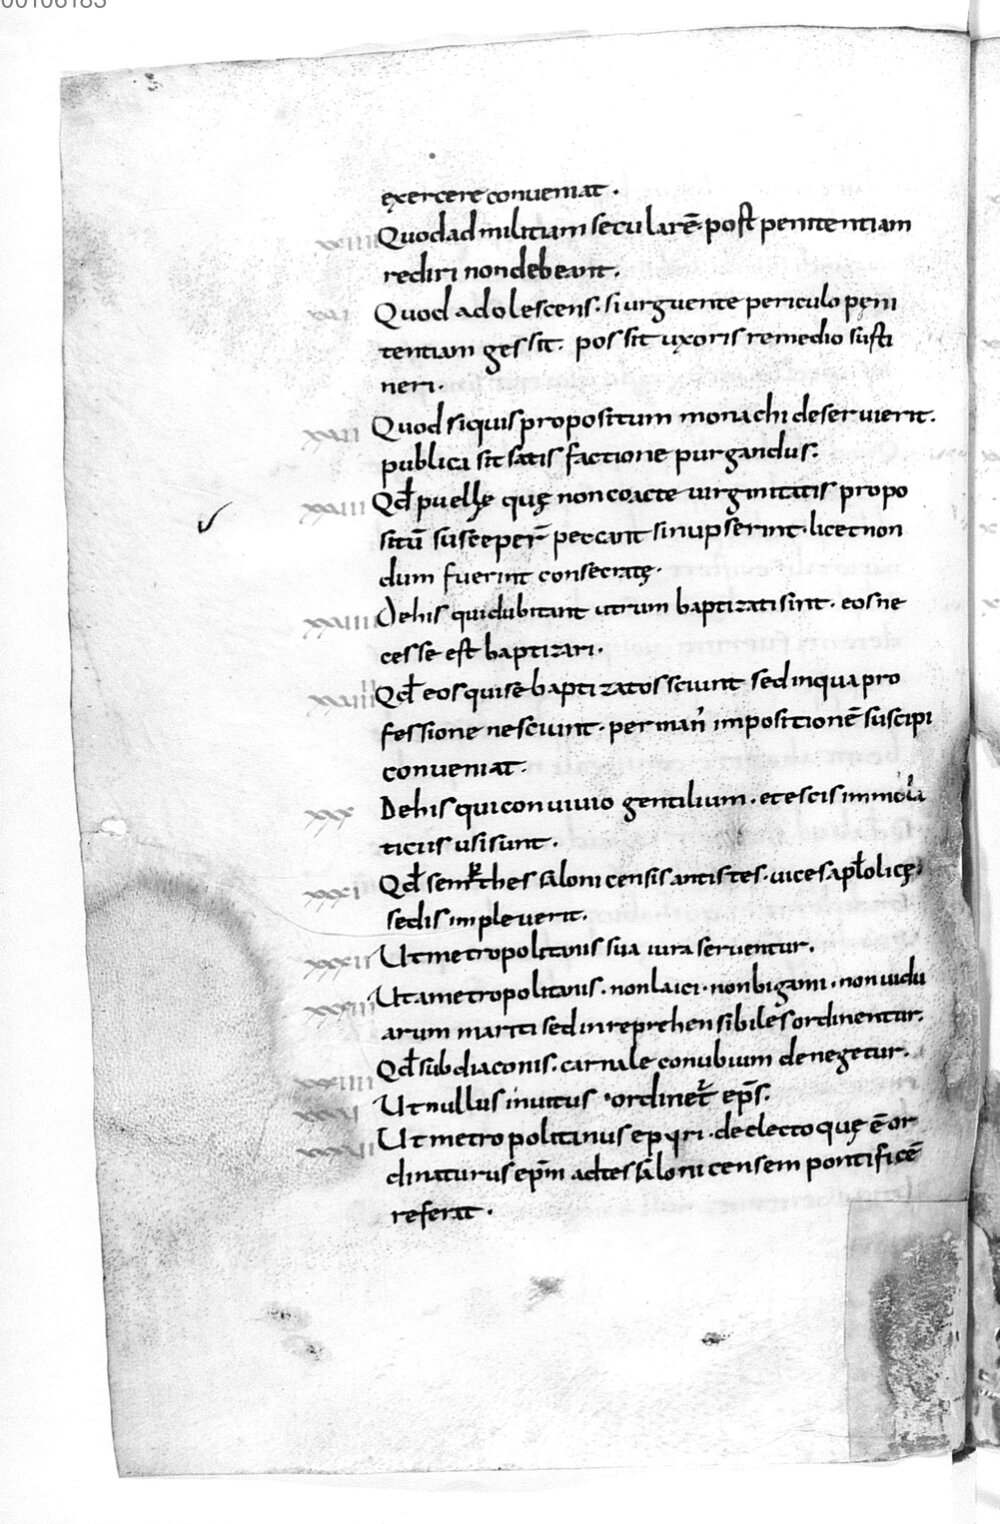 00106183
exercere conueniat.
xxiiii Quod ad militiam secularē. post penitentiam
rediri non debeant.
xxvi Quod adolescens. si urguente periculo pęni
tentiam gessit. possit uxoris remedio susti
neri.
xxvii Quod si quis propositum monachi deseruierit.
publica sit satis factione purgandus.
xxviii Qd̄ puellę quę non coacte uirginitatis propo
sitū susceper̄ peccant si nupserint. licet non
dum fuerint consecratę.
xxviiii De his qui dubitant utrum baptizati sint. eos ne
cesse est baptizari.
Qd̄ eos qui sē baptizatos sciunt sed in qua pro
fessione nesciunt. per man̄ impositionē suscipi
conueniat.
xxx De his qui conuiuio gentilium. et escis immola
ticiis usi sunt.
xxxi Qd̄ senerthes saloni censis antistes. uices apl̄olicę
sedis impleuerit.
xxxii Ut metropolitanis sua iura seruentur.
xxxiii Ut a metropolitanis. non laici. non bigami. non uidu
arum mariti sed inreprehensibiles ordinentur.
xxxiiii Qd̄ subdiaconis. carnale conubium denegetur.
xxxvi Ut nullus inuitus ordinet̄ ep̄s.
xxxvii Ut metropolitanus epyri. de electo quę ē or
dinaturus ep̄m ad tessaloni censem pontificē
referat.